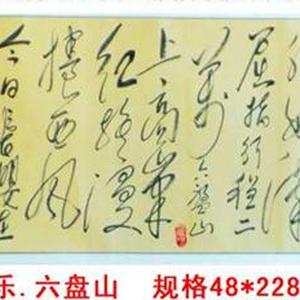 好漢
屈指行程二
萬六盤山
上高峰
红旗漫
捲西風
今日長纓在
乐.六盘山 规格48*228